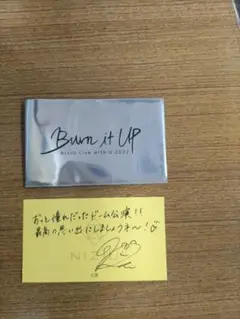 Burn it UP
NiziU Live with U 2022
ずっと憧れだったドーム公演!!
最高の思い出にしましょうネ〜!
NIZIU